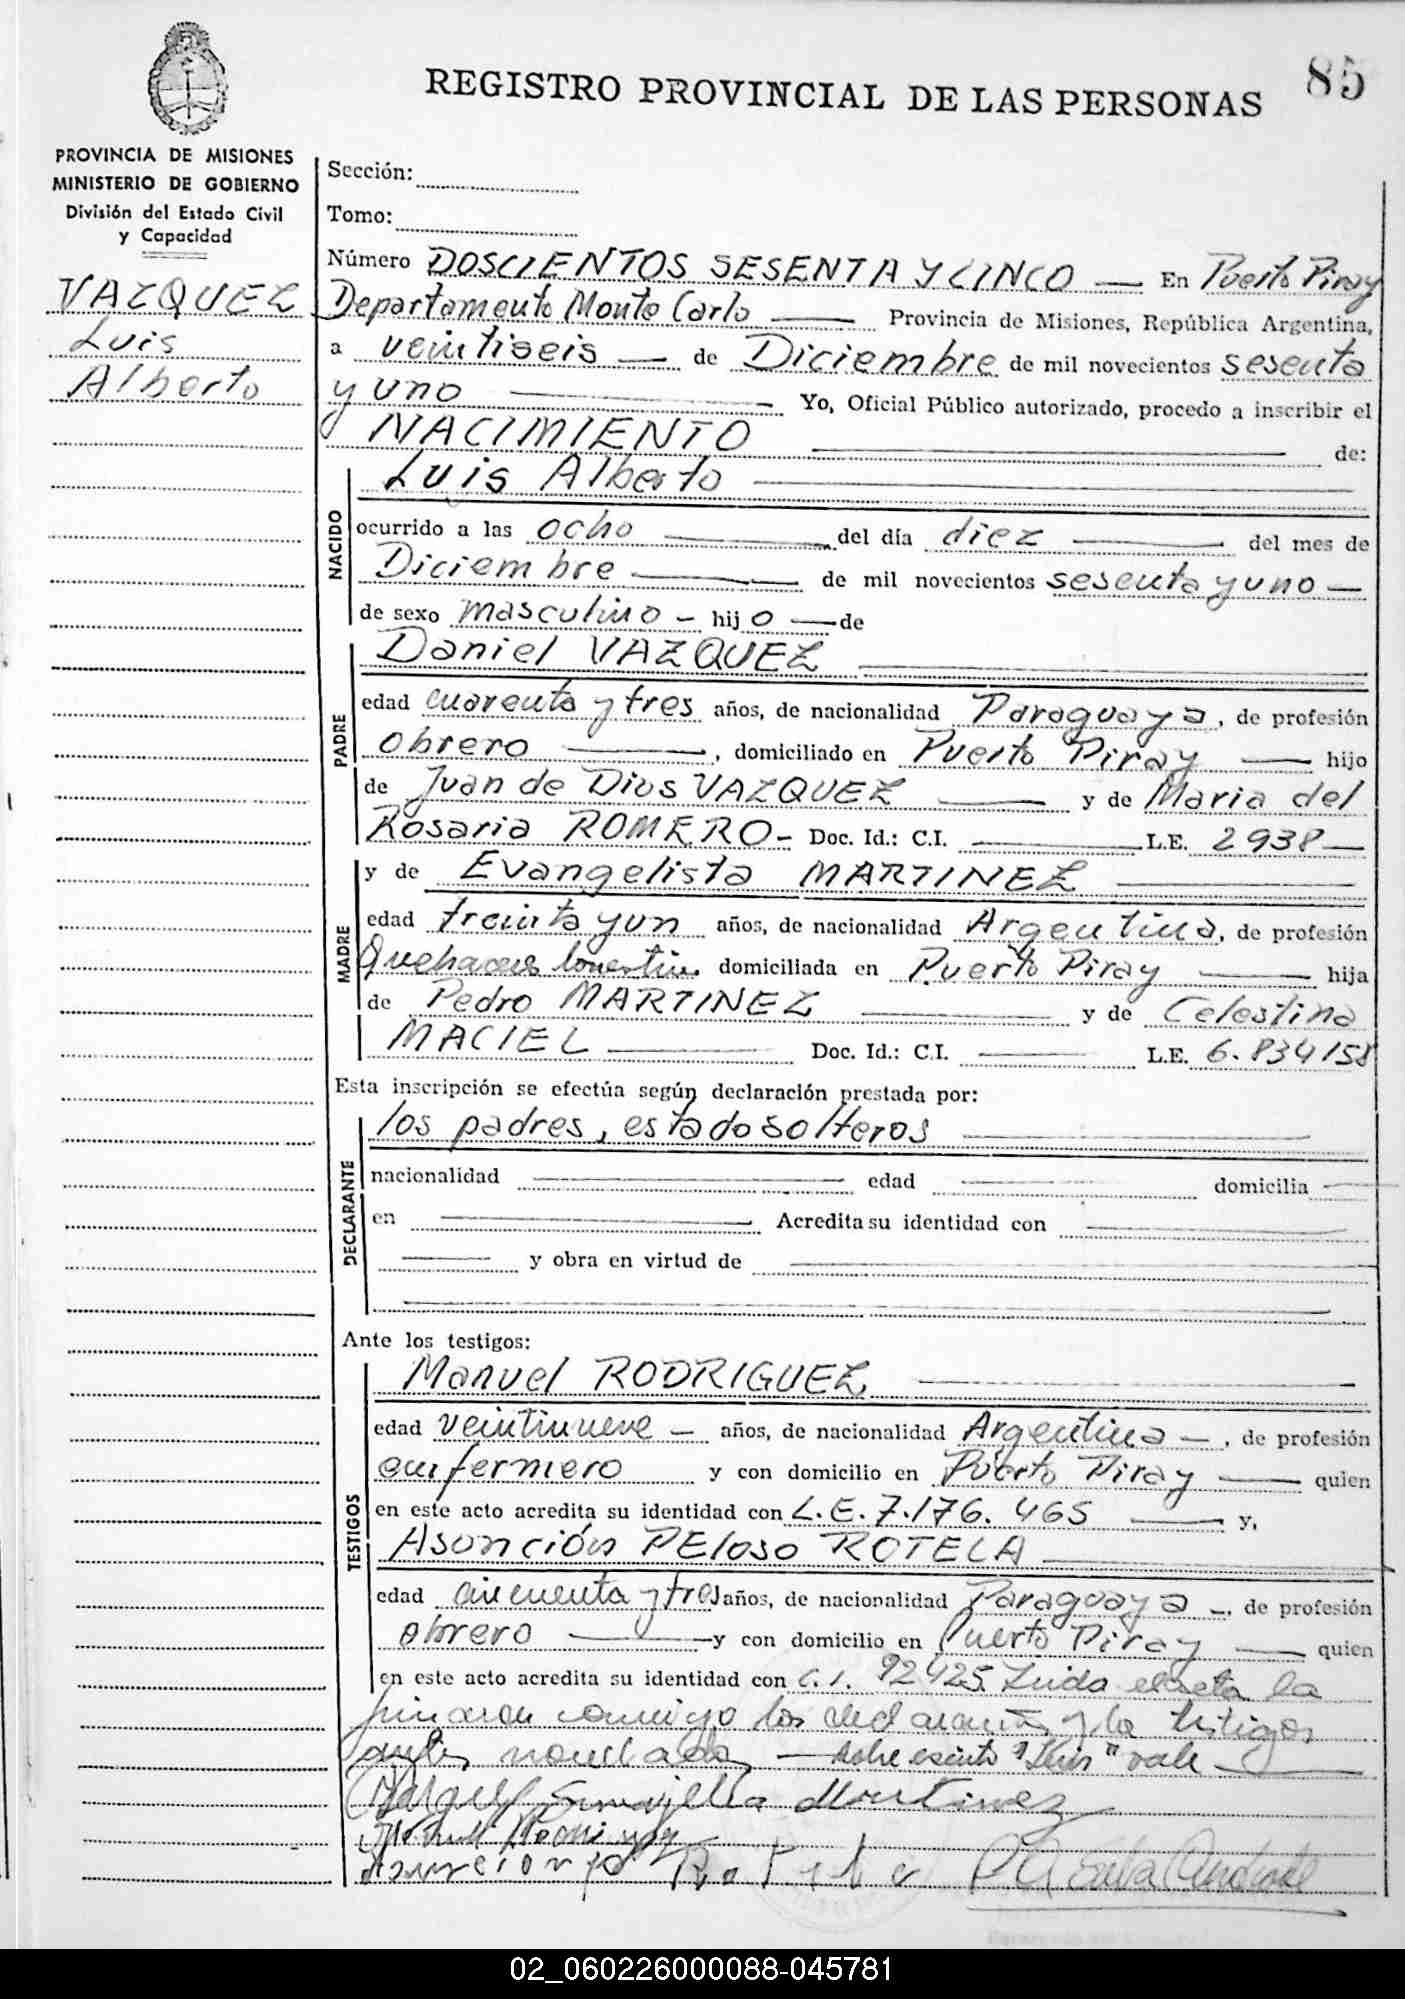 85
REGISTRO PROVINCIAL DE LAS PERSONAS
PROVINCIA DE MISIONES
MINISTERIO DE GOBIERNO
División del Estado Civil
y Capacidad
VAZQUEZ
Luis
Alberto
Sección:
Tomo:
Número DOSCIENTOS SESENTA Y CINCO — En Puerto Piray
Departamento Monte Carlo — Provincia de Misiones, República Argentina,
a veintiseis — de Diciembre de mil novecientos sesenta
y uno — Yo, Oficial Público autorizado, procedo a inscribir el
NACIMIENTO — de:
NACIDO
Luis Alberto —
ocurrido a las ocho — del día diez — del mes de
Diciembre — de mil novecientos sesenta y uno —
de sexo masculino — hijo — de
PADRE
Daniel VAZQUEZ —
edad cuarenta y tres años, de nacionalidad Paraguaya, de profesión
obrero —, domiciliado en Puerto Piray — hijo
de Juan de Dios VAZQUEZ — y de Maria del
Rosaria ROMERO - Doc. Id.: C.I. — L.E. 2938 —
MADRE
y de Evangelista MARTINEZ —
edad treinta y un años, de nacionalidad Argentina, de profesión
Quehaceres domiciliada en Puerto Piray — hija
de Pedro MARTINEZ — y de Celestina
MACIEL — Doc. Id.: C.I. — L.E. 6.834158
Esta inscripción se efectúa según declaración prestada por:
DECLARANTE
los padres, estado solteros —
nacionalidad — edad — domicilia —
en — Acredita su identidad con —
— y obra en virtud de —
Ante los testigos:
TESTIGOS
Manuel RODRIGUEZ —
edad veintinueve — años, de nacionalidad Argentina —, de profesión
enfermero y con domicilio en Puerto Piray — quien
en este acto acredita su identidad con L.E. 7.176.465 — y,
Asunción PEloso ROTELA —
edad cincuenta y tres años, de nacionalidad Paraguaya —, de profesión
obrero — y con domicilio en Puerto Piray — quien
en este acto acredita su identidad con C.I. 92425. Leida el acta la
firman conmigo los y los testigos
antes — sobre escrito "Luis" vale —
Martinez
Rotela
02_060226000088-045781